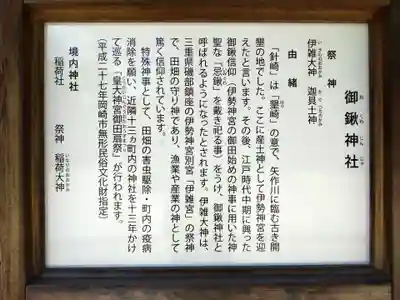 御鍬神社
おくわじんじゃ
祭神
伊雑大神 迦具土神
由緒
「針崎」は「墾崎」の意で、矢作川に臨む古き開
墾の地でした。ここに産土神として伊勢神宮を迎
えたと言います。その後、江戸時代中期に興った
御鍬信仰(伊勢神宮の御田始めの神事に用いた神
聖な「忌鍬」を戴き祀る事)をうけ、御鍬神社と
呼ばれるようになったとされます。伊雑大神は、
三重県磯部鎮座の伊勢神宮別宮「伊雑宮」の祭神
で、田畑の守り神であり、漁業や産業の神として
篤く信仰されています。
特殊神事として、田畑の害虫駆除・町内の疫病
消除を願い、近隣十三カ町内の神社を十三年かけ
て巡る「皇大神宮御田扇祭」が行われます。
(平成二十七年岡崎市無形民俗文化財指定)
境内神社
稲荷社 祭神 稲荷大神